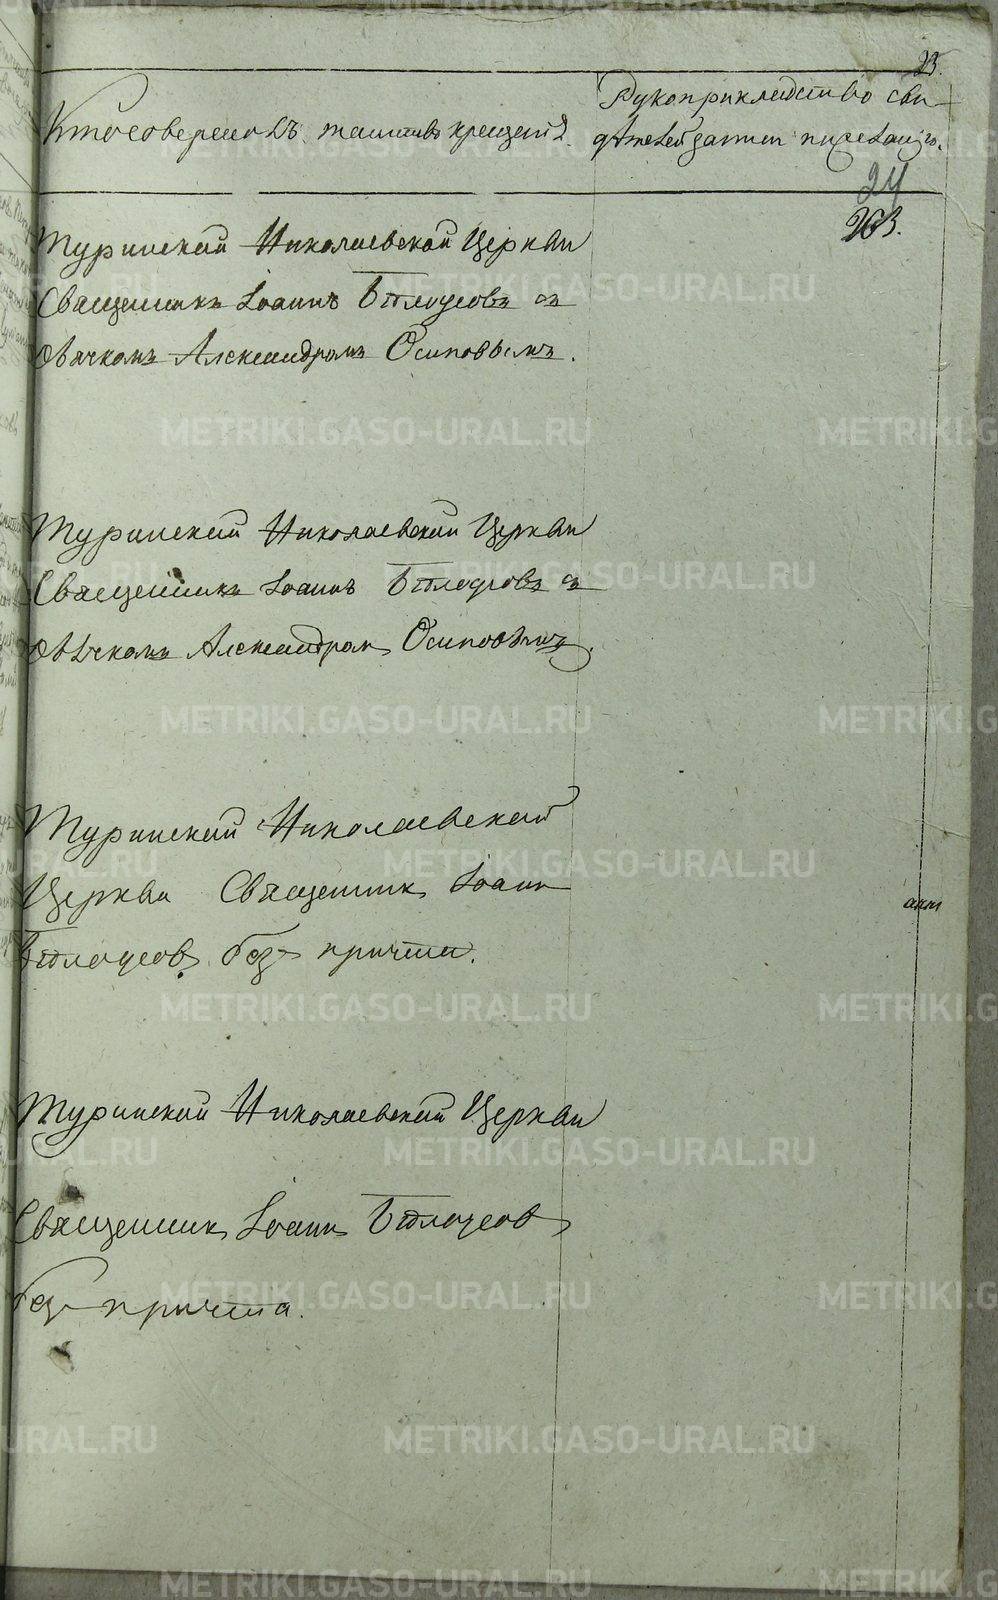 23.
Кто совершалъ таинство крещенія.
Рукоприкладство сви-
дѣтелей записи
24
263.
Туринской Николаевской Церкви
Священникъ Іоаннъ Бѣлоусовъ съ
дьячкомъ Александромъ Осиповымъ.
Туринской Николаевской Церкви
Священникъ Іоаннъ Бѣлоусовъ съ
дьячкомъ Александром Осиповымъ.
Туринской Николаевской
Церкви Священник Іоанн
Бѣлоусов без причта.
Туринской Николаевской Церкви
Священник Іоанн Бѣлоусов
без причта.
METRIKI.GASO-URAL.RU